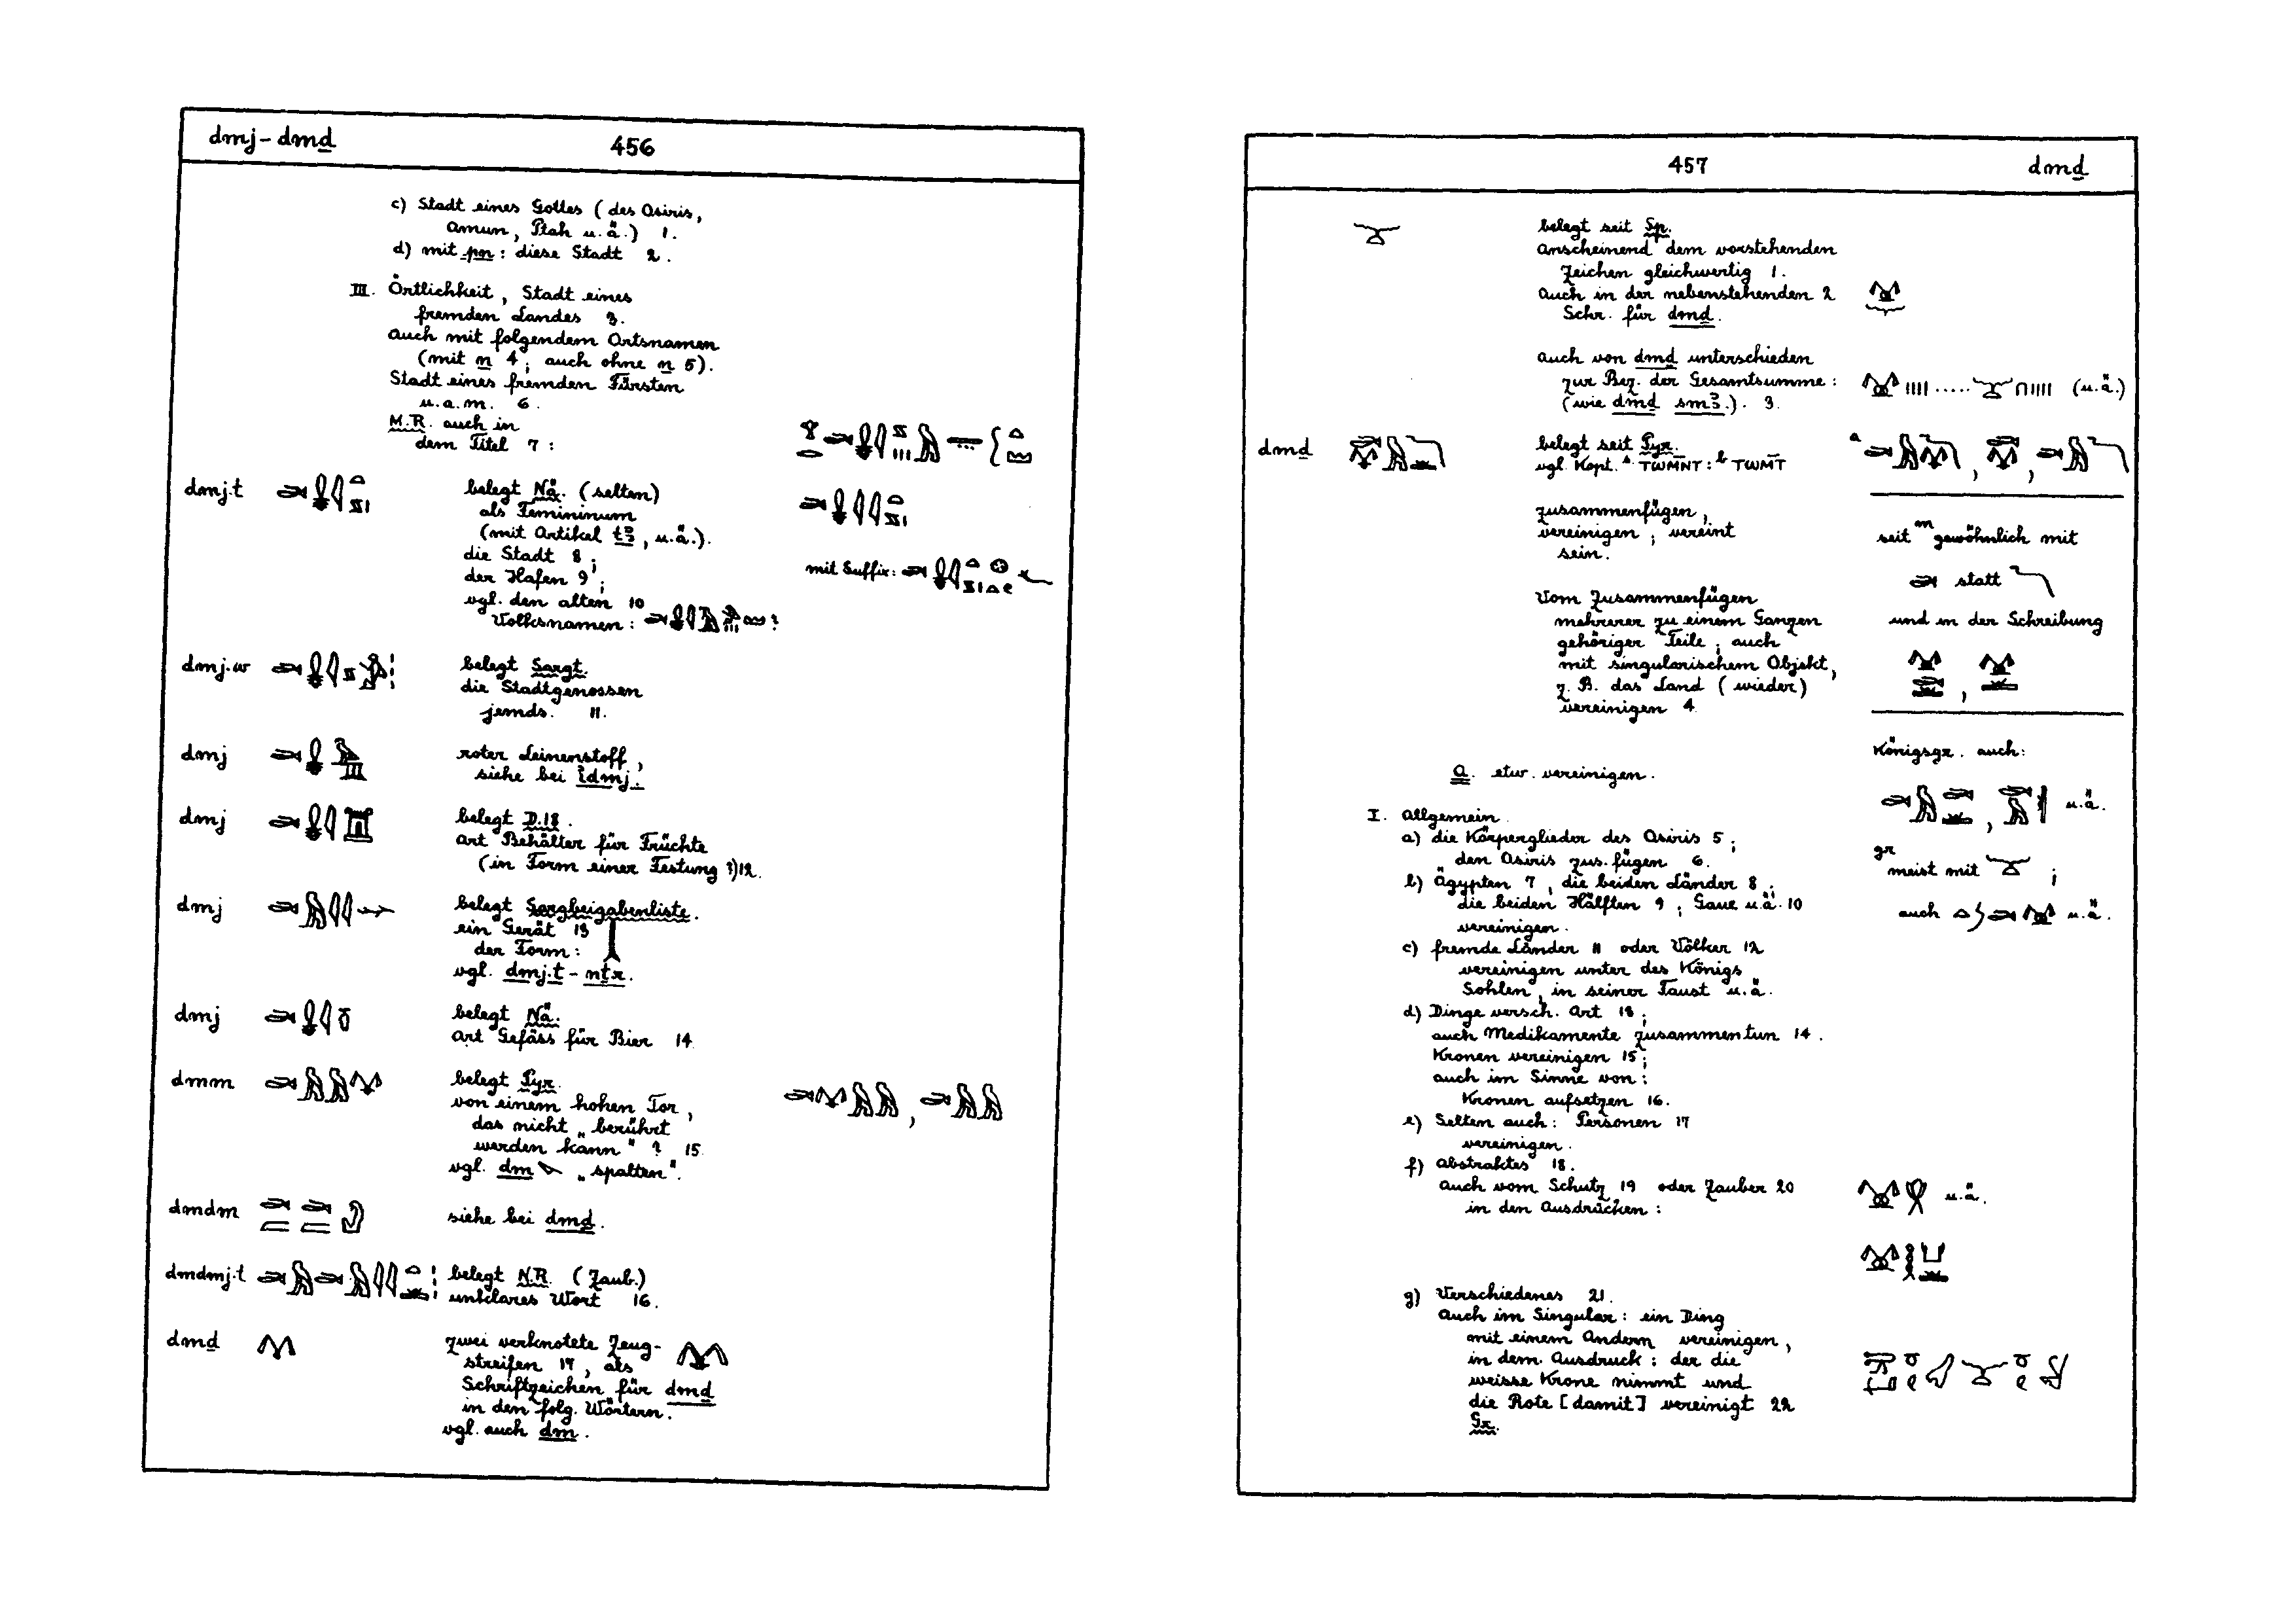 dmj – dmḏ 456
c) Stadt eines Gottes (des Osiris,
Amun, Ptah u.ä.) 1.
d) mit pn: diese Stadt 2.
III. Örtlichkeit, Stadt eines
fremden Landes 3.
Auch mit folgendem Ortsnamen
(mit n 4; auch ohne n 5).
Stadt eines fremden Fürsten
u.a.m. 6.
M.R. auch in
dem Titel 7:
dmj.t belegt Nä. (selten)
als Femininum
(mit Artikel tꜣ, u.ä.).
die Stadt 8;
der Hafen 9;
mit Suffix:
vgl. den alten 10
Volksnamen: ?
dmj.w belegt Sargt.
die Stadtgenossen
jemds. 11.
dmj roter Leinenstoff,
siehe bei idmj.
dmj belegt D.18.
Art Behälter für Früchte
(in Form einer Festung ?) 12.
dmj belegt Sargbeigabenliste.
ein Gerät 13
der Form:
vgl. dmj.t - nṯr.
dmj belegt Nä.
Art Gefäss für Bier 14
dmm belegt Pyr.
von einem hohen Tor,
das nicht „berührt
werden kann" ? 15
vgl. dm „spalten".
dmdm siehe bei dmḏ.
dmdmj.t belegt N.R. (Zaub.)
unklares Wort 16.
dmḏ zwei verknotete Zeug-
streifen 17, als
Schriftzeichen für dmḏ
in den folg. Wörtern.
vgl. auch dm.
457 dmḏ
belegt seit Sp.
Anscheinend dem vorstehenden
Zeichen gleichwertig 1.
Auch in der nebenstehenden 2
Schr. für dmḏ.
Auch von dmḏ unterschieden
zur Bez. der Gesamtsumme: (u.ä.)
(wie dmḏ smꜣ.). 3.
dmḏ belegt seit Pyr. a
vgl. Kopt. TWMNT: b TWMT
zusammenfügen,
vereinigen; vereint
sein.
Vom Zusammenfügen
mehrerer zu einem Ganzen
gehöriger Teile; auch
mit singularischem Objekt,
z.B. das Land (wieder)
vereinigen 4
seit m gewöhnlich mit
statt
und in der Schreibung
,
Königsgr. auch:
, u.ä.
gr
meist mit ;
auch u.ä.
a. etw. vereinigen.
I. Allgemein.
a) die Körperglieder des Osiris 5;
den Osiris zus. fügen 6.
b) Ägypten 7, die beiden Länder 8;
die beiden Hälften 9; Gaue u.ä. 10
vereinigen.
c) fremde Länder 11 oder Völker 12
vereinigen unter des Königs
Sohlen, in seiner Faust u.ä.
d) Dinge versch. Art 13;
auch Medikamente zusammentun 14.
Kronen vereinigen 15;
auch im Sinne von:
Kronen aufsetzen 16.
e) Selten auch: Personen 17
vereinigen.
f) Abstraktes 18.
Auch vom Schutz 19 oder Zauber 20 u.ä.
in den Ausdrücken:
g) Verschiedenes 21.
Auch im Singular: ein Ding
mit einem Andern vereinigen,
in dem Ausdruck: der die
weisse Krone nimmt und
die Rote [damit] vereinigt 22
Gr.